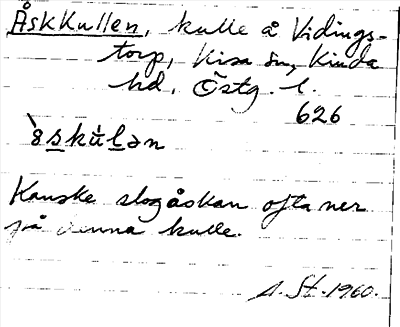 Åskkullen, kulle å Vidings-
torp, Kisa sn, Kinda
hd, Östg. l.
626
Kanske slog åskan ofta ner
på denna kulle.
A. St. 1960.